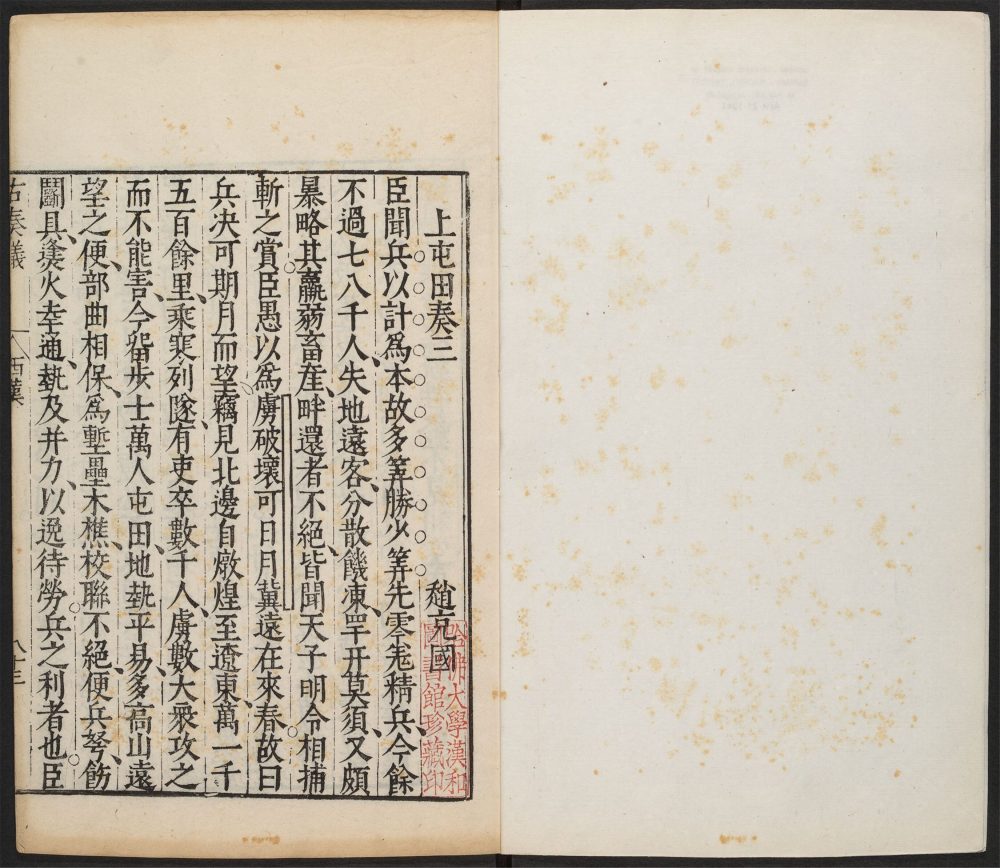 上屯田奏三　趙充國
臣聞兵以計為本故多筭勝少筭先零羌精兵今餘
不過七八千人失地遠客分散饑凍䍐幵莫須又頗
暴略其羸弱畜產畔還者不絕皆聞天子明令相捕
斬之賞臣愚以為虜破壞可日月冀遠在來春故曰
兵決可期月而望竊見北邊自燉煌至遼東萬一千
五百餘里乘塞列隧有吏卒數千人虜數大衆攻之
而不能害今留步士萬人屯田地埶平易多高山遠
望之便部曲相保為塹壘木樵校聯不絕便兵弩飭
鬭具㷭火幸通埶及并力以逸待勞兵之利者也臣
古奏議　西漢　八十三
哈佛大學漢和
圖書館珍藏印